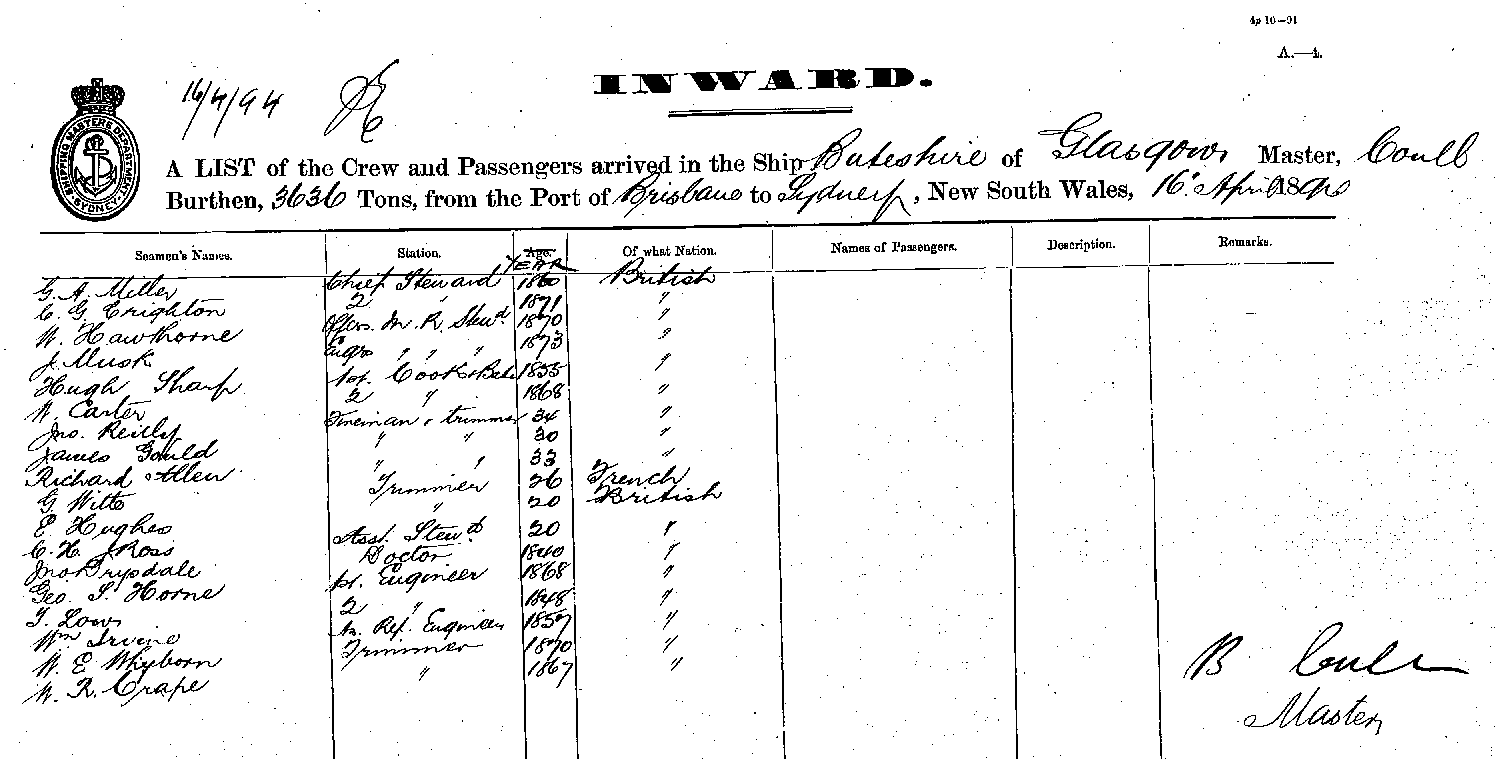 4p 10—91
A.—4.
16/4/94
INWARD.
SHIPPING MASTERS DEPARTMENT SYDNEY
A LIST of the Crew and Passengers arrived in the Ship Buteshire of Glasgow Master, Coull
Burthen, 3636 Tons, from the Port of Brisbane to Sydney, New South Wales, 16 April 189
Seamen's Names. Station. Age. YEAR Of what Nation. Names of Passengers. Description. Remarks.
G. A. Miller Chief Steward 1860 British
C. G. Crighton 2 " 1871 "
W. Hawthorne Offcrs. M. R. Stewd. 1870 "
J. Musk Engrs " " " 1873 "
Hugh Sharp 1st. Cook & Bake 1855 "
W. Carter 2 " 1868 "
Jno. Reilly Fireman & trimmer 34 "
James Gould " " 30 "
Richard Allen " " 33 "
G. Witts Trimmer 26 French
E Hughes " 20 British
C. H. J. Ross Asst. Stewd. 20 "
Jno Drysdale Doctor 1840 "
Geo. S. Horne 1st. Engineer 1868 "
T. Low 2 " 1848 "
Wm Irvine Ref. Engineer 1857 "
W. E Whyborn Trimmer 1870 "
W. R. Crape " 1867 "
B Coull
Master